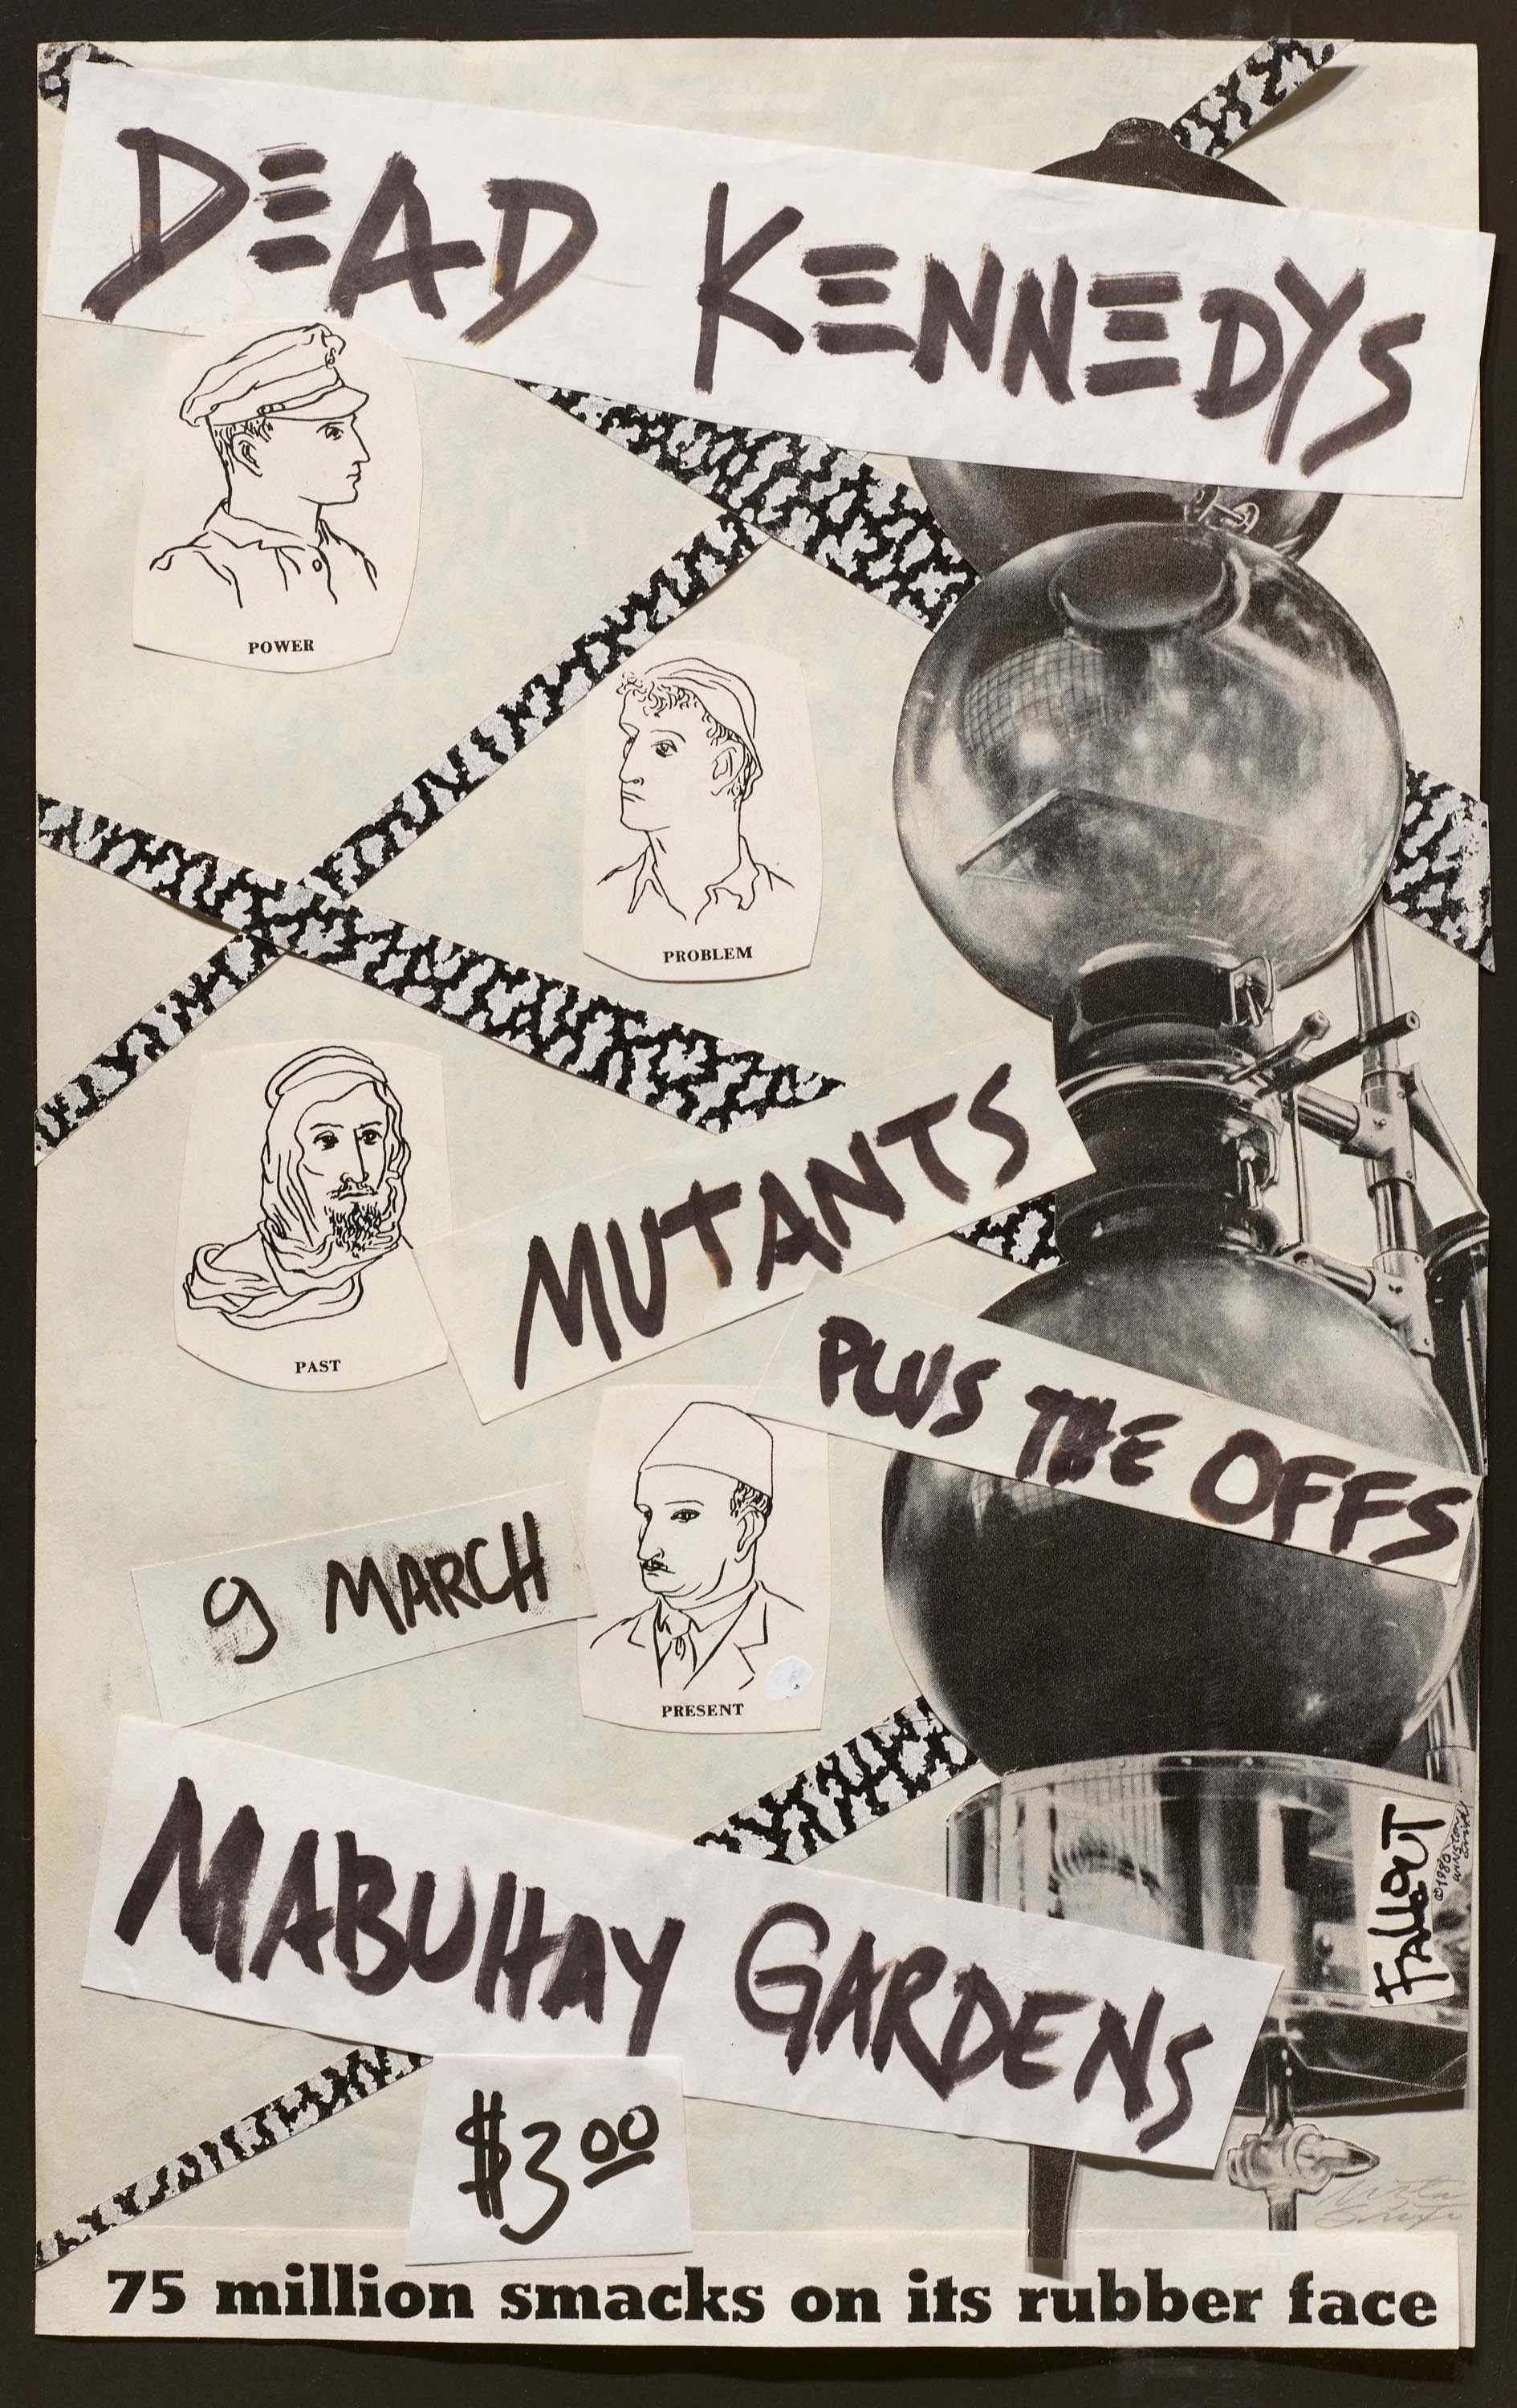 DEAD KENNEDYS
POWER
PROBLEM
PAST
MUTANTS
PLUS THE OFFS
9 MARCH
PRESENT
MABUHAY GARDENS
FALLOUT
©1980
WINSTON
SMITH
$3.00
75 million smacks on its rubber face